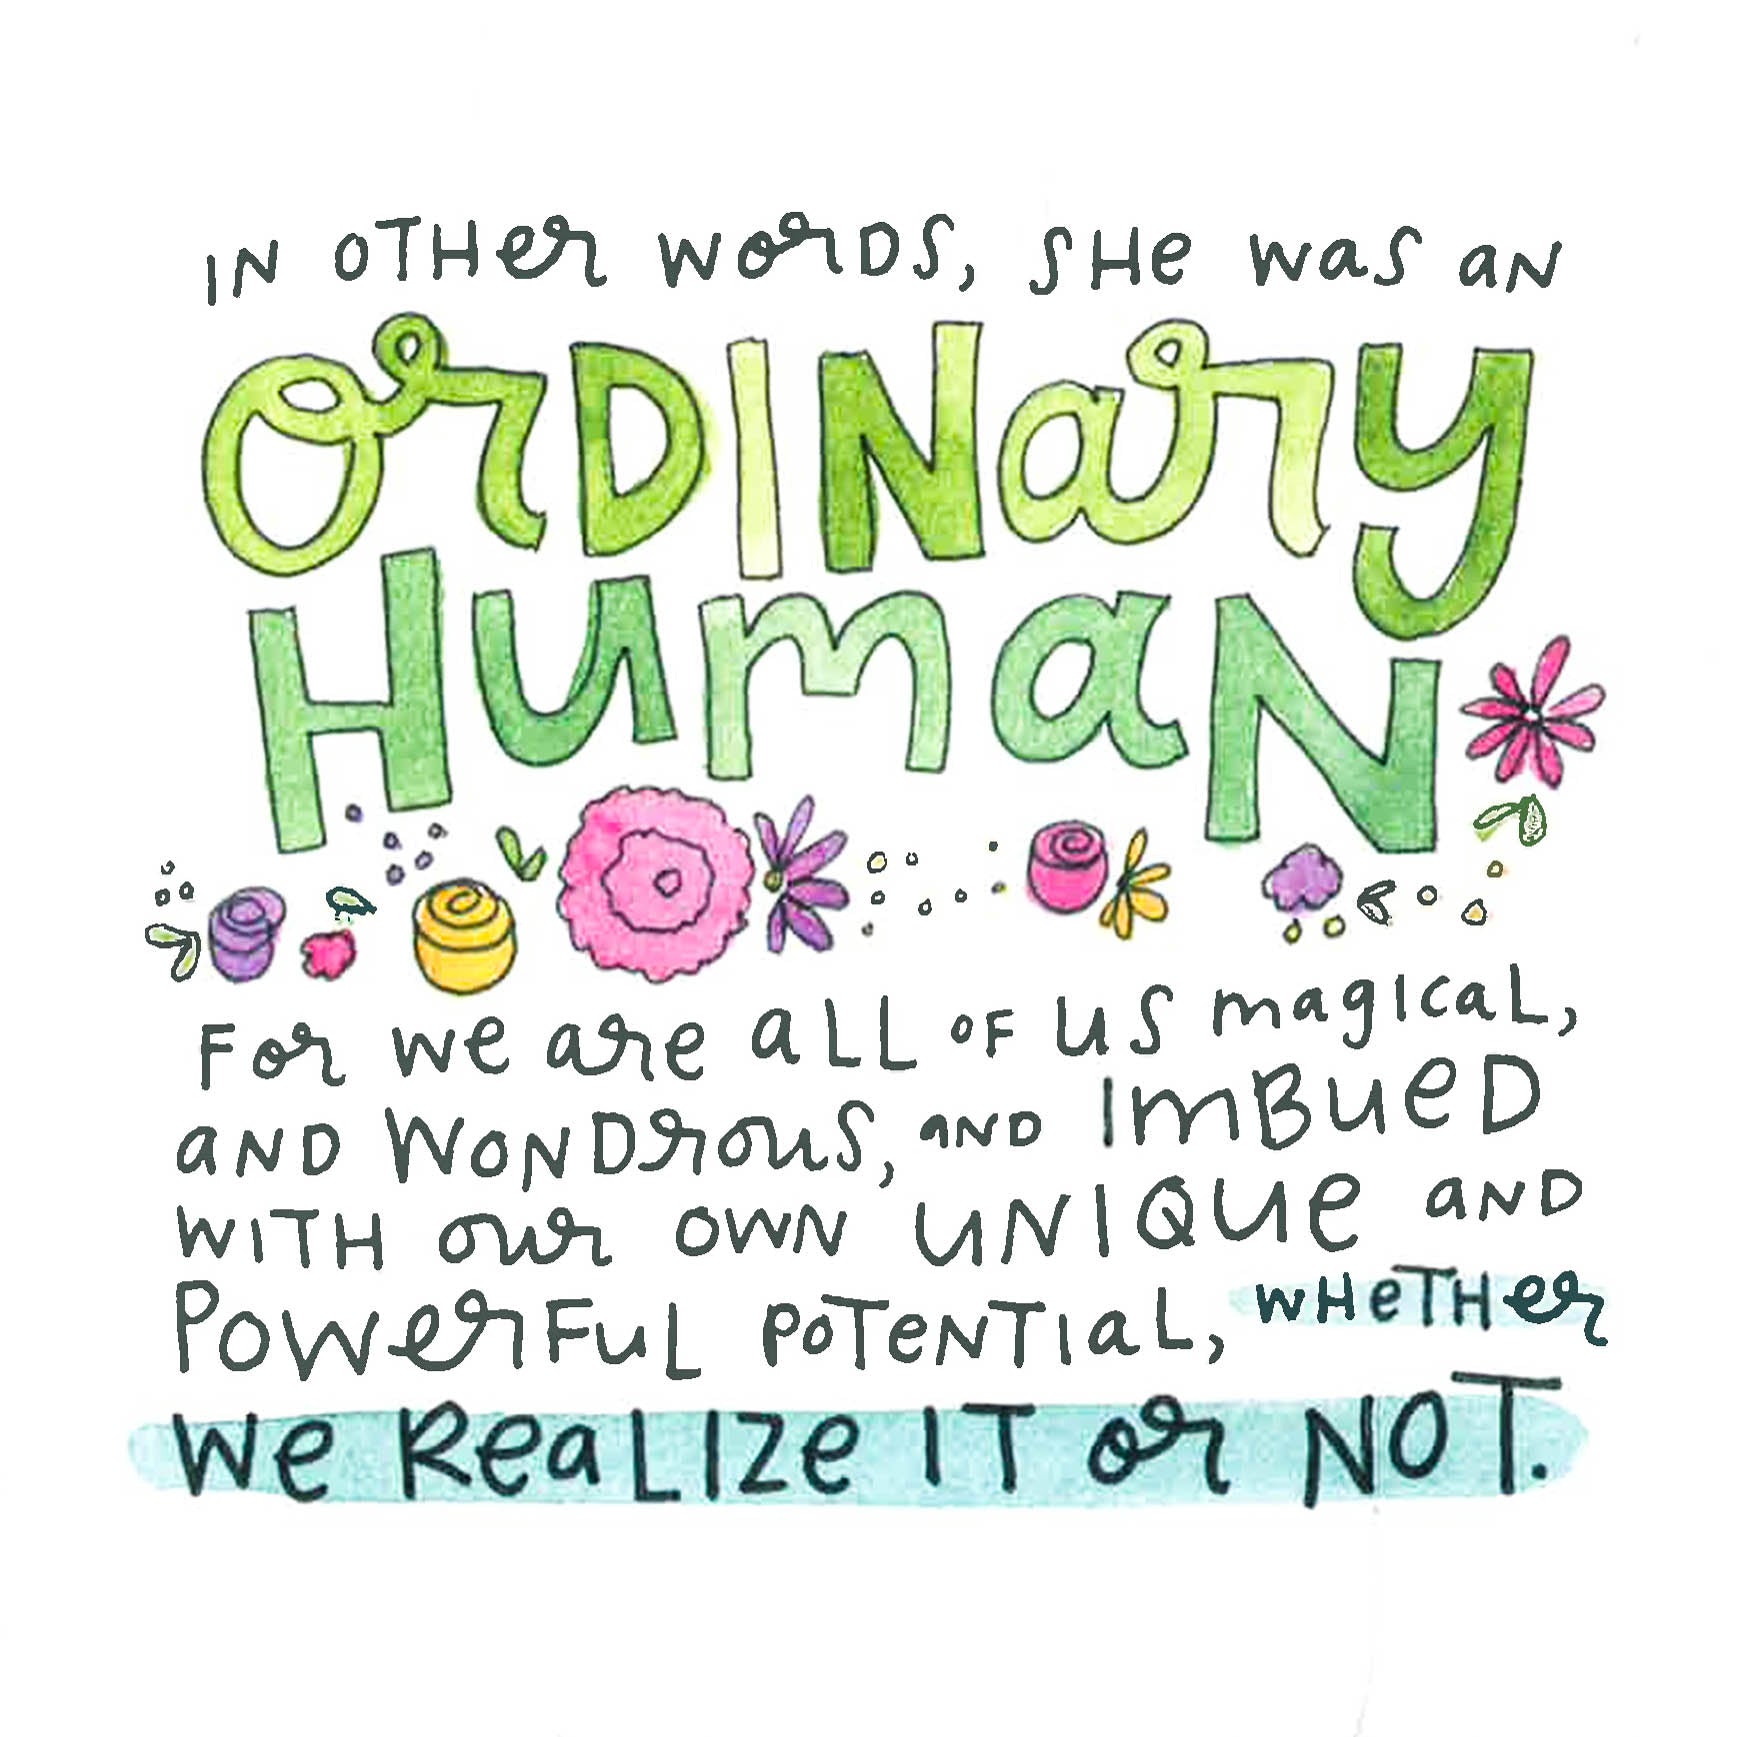 IN OTHER WORDS, SHE WAS AN
ORDINARY
HUMAN
FOR WE ARE ALL OF US MAGICAL,
AND WONDROUS, AND IMBUED
WITH OUR OWN UNIQUE AND
POWERFUL POTENTIAL, WHETHER
WE REALIZE IT OR NOT.